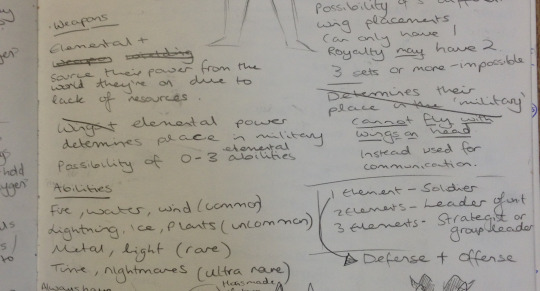 Weapons
Elemental +
source their power from the
world they're on due to
lack of resources.
Wings + elemental power
determines place in military
elemental
Possibility of 0-3 abilities
Abilities
Fire, water, wind (common)
Lightning, ice, plants (uncommon)
Metal, light (rare)
Time, nightmares (ultra rare)
Always have
Possibility of
wing placements
Can only have 1
Royalty may have 2.
3 sets or more - impossible
Determines their
place in the 'military'
Cannot fly with
wings on head
Instead used for
communication.
1 Element - Soldier
2 Elements - Leader of unit
3 Elements - Strategist or
group leader
Defense + Offense